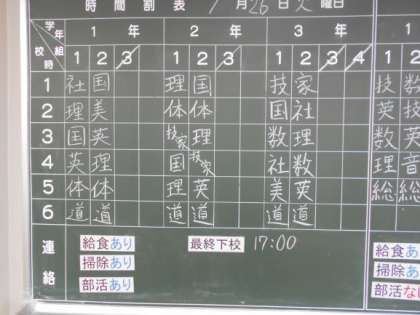 時間割表 月26日火曜日
学年 組 校時 1年 2年 3年 1
1 2 3 1 2 3 1 2 3 4 1 2
1 社 国 理 国 技 家 技 数
2 理 美 体 体 国 社 英 技
3 国 英 技家 理 数 理 数 英
4 英 理 国 技家 社 数 理 音
5 体 体 理 英 美 英 総 総
6 道 道 道 道 道 道
連絡 給食あり 最終下校 17:00 給食あ
掃除あり 掃除あ
部活あり 部活な